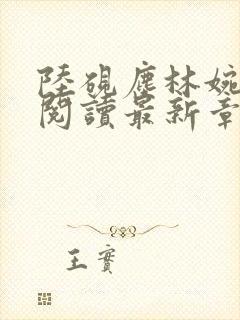 陸硯塵林婉
閱讀最新章
王寶